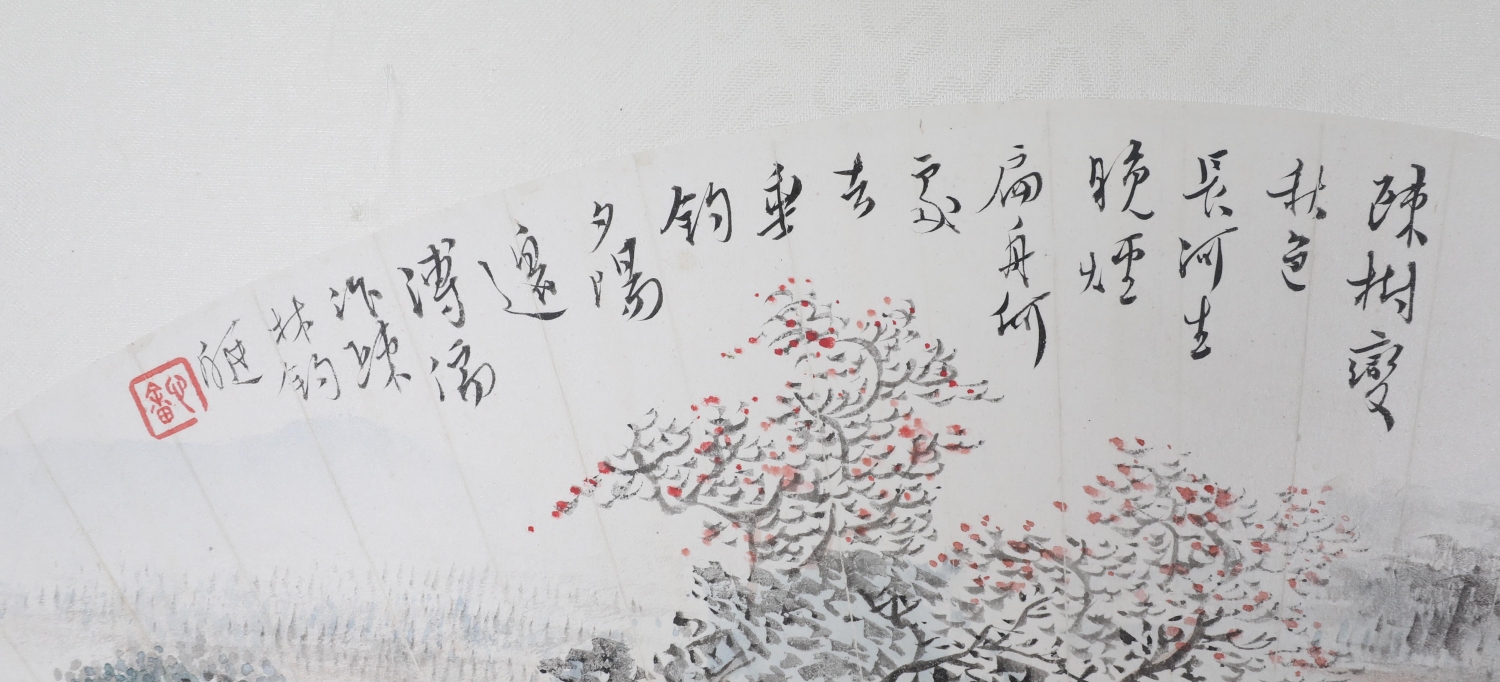 疎樹變
秋色
長河生
晚煙
扁舟何
處
去
垂
釣
夕陽
邊
溥儒
作陳
林鈞
艇